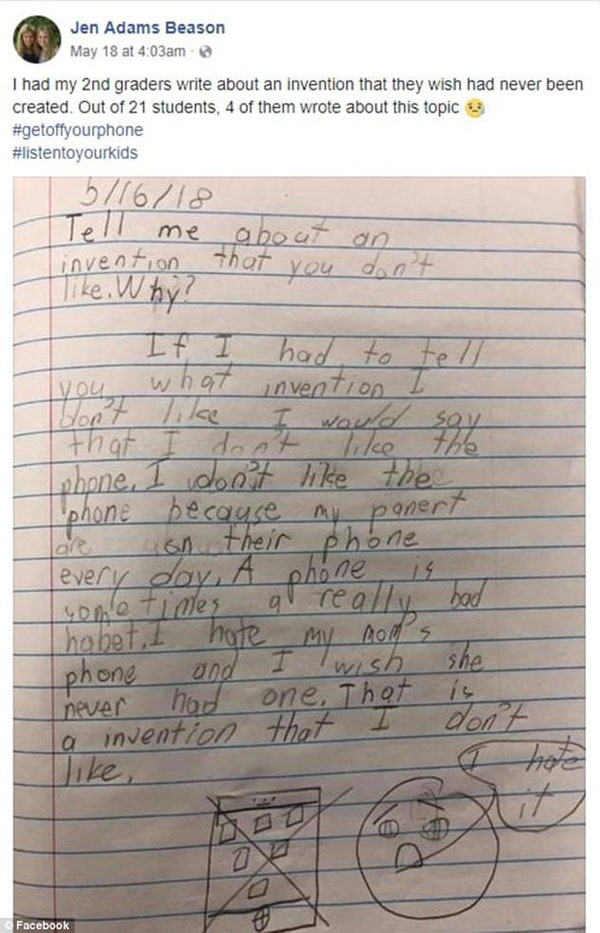 Jen Adams Beason
May 18 at 4:03am
I had my 2nd graders write about an invention that they wish had never been
created. Out of 21 students, 4 of them wrote about this topic 😢
#getoffyourphone
#listentoyourkids
5/16/18
Tell me about an
invention that you don't
like. Why?
If I had to tell
you what invention I
don't like I would say
that I don't like the
phone. I don't like the
phone because my panert
are on their phone
every day. A phone is
sometimes a really bad
habet. I hate my mom's
phone and I wish she
never had one. That is
a invention that I don't
like.
I hate
it
© Facebook